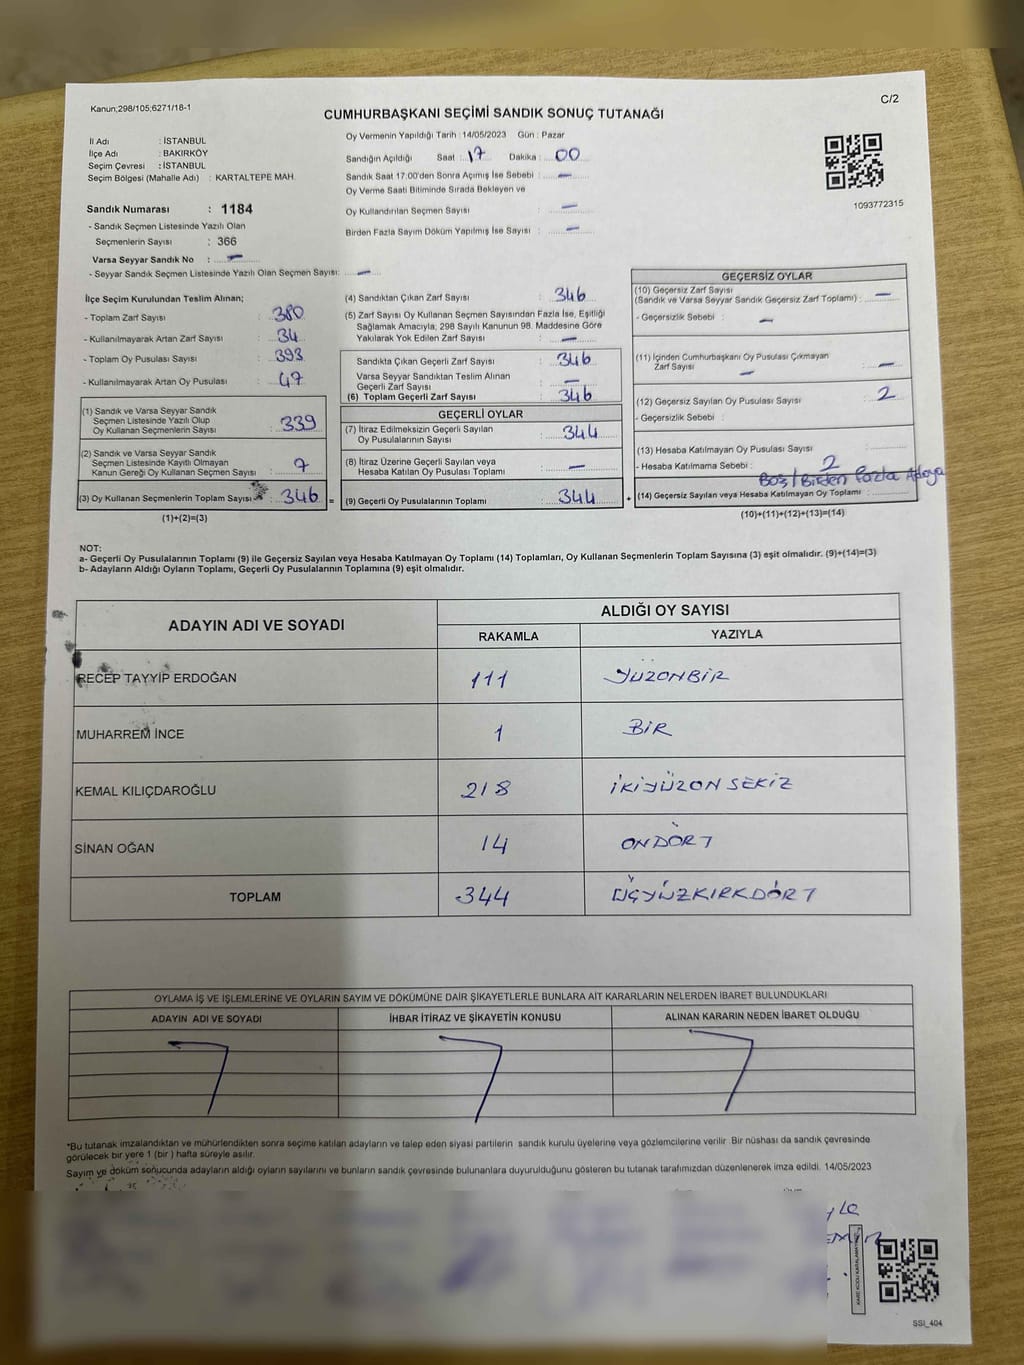 Kanun;298/105;6271/18-1
C/2
CUMHURBAŞKANI SEÇİMİ SANDIK SONUÇ TUTANAĞI
İl Adı : İSTANBUL
İlçe Adı : BAKIRKÖY
Seçim Çevresi : İSTANBUL
Seçim Bölgesi (Mahalle Adı) : KARTALTEPE MAH.
Oy Vermenin Yapıldığı Tarih : 14/05/2023 Gün : Pazar
Sandığın Açıldığı Saat : 17 Dakika : 00
Sandık Saat 17:00'den Sonra Açımış İse Sebebi : —
Oy Verme Saati Bitiminde Sırada Bekleyen ve
Oy Kullandırılan Seçmen Sayısı : —
Birden Fazla Sayım Döküm Yapılmış İse Sayısı : —
1093772315
Sandık Numarası : 1184
- Sandık Seçmen Listesinde Yazılı Olan
Seçmenlerin Sayısı : 366
Varsa Seyyar Sandık No : —
- Seyyar Sandık Seçmen Listesinde Yazılı Olan Seçmen Sayısı: —
İlçe Seçim Kurulundan Teslim Alınan;
- Toplam Zarf Sayısı : 380
- Kullanılmayarak Artan Zarf Sayısı : 34
- Toplam Oy Pusulası Sayısı : 393
- Kullanılmayarak Artan Oy Pusulası : 47
(1) Sandık ve Varsa Seyyar Sandık
Seçmen Listesinde Yazılı Olup
Oy Kullanan Seçmenlerin Sayısı : 339
(2) Sandık ve Varsa Seyyar Sandık
Seçmen Listesinde Kayıtlı Olmayan
Kanun Gereği Oy Kullanan Seçmen Sayısı : 7
(3) Oy Kullanan Seçmenlerin Toplam Sayısı : 346 =
(1)+(2)=(3)
(4) Sandıktan Çıkan Zarf Sayısı : 346
(5) Zarf Sayısı Oy Kullanan Seçmen Sayısından Fazla İse, Eşitliği
Sağlamak Amacıyla, 298 Sayılı Kanunun 98. Maddesine Göre
Yakılarak Yok Edilen Zarf Sayısı : —
Sandıkta Çıkan Geçerli Zarf Sayısı : 346
Varsa Seyyar Sandıktan Teslim Alınan
Geçerli Zarf Sayısı : —
(6) Toplam Geçerli Zarf Sayısı : 346
GEÇERLİ OYLAR
(7) İtiraz Edilmeksizin Geçerli Sayılan
Oy Pusulalarının Sayısı : 344
(8) İtiraz Üzerine Geçerli Sayılan veya
Hesaba Katılan Oy Pusulası Toplamı : —
(9) Geçerli Oy Pusulalarının Toplamı : 344 +
GEÇERSİZ OYLAR
(10) Geçersiz Zarf Sayısı
(Sandık ve Varsa Seyyar Sandık Geçersiz Zarf Toplamı) : —
- Geçersizlik Sebebi : —
(11) İçinden Cumhurbaşkanı Oy Pusulası Çıkmayan
Zarf Sayısı : —
—
(12) Geçersiz Sayılan Oy Pusulası Sayısı : 2
- Geçersizlik Sebebi :
(13) Hesaba Katılmayan Oy Pusulası Sayısı :
- Hesaba Katılmama Sebebi : 2
Boş/Birden Fazla Adaya
(14) Geçersiz Sayılan veya Hesaba Katılmayan Oy Toplamı :
(10)+(11)+(12)+(13)=(14)
NOT:
a- Geçerli Oy Pusulalarının Toplamı (9) ile Geçersiz Sayılan veya Hesaba Katılmayan Oy Toplamı (14) Toplamları, Oy Kullanan Seçmenlerin Toplam Sayısına (3) eşit olmalıdır. (9)+(14)=(3)
b- Adayların Aldığı Oyların Toplamı, Geçerli Oy Pusulalarının Toplamına (9) eşit olmalıdır.
ADAYIN ADI VE SOYADI
ALDIĞI OY SAYISI
RAKAMLA YAZIYLA
RECEP TAYYİP ERDOĞAN 111 YÜZONBİR
MUHARREM İNCE 1 BİR
KEMAL KILIÇDAROĞLU 218 İKİYÜZON SEKİZ
SİNAN OĞAN 14 ONDÖRT
TOPLAM 344 ÜÇYÜZKIRKDÖRT
OYLAMA İŞ VE İŞLEMLERİNE VE OYLARIN SAYIM VE DÖKÜMÜNE DAİR ŞİKAYETLERLE BUNLARA AİT KARARLARIN NELERDEN İBARET BULUNDUKLARI
ADAYIN ADI VE SOYADI İHBAR İTİRAZ VE ŞİKAYETİN KONUSU ALINAN KARARIN NEDEN İBARET OLDUĞU
*Bu tutanak imzalandıktan ve mühürlendikten sonra seçime katılan adayların ve talep eden siyasi partilerin sandık kurulu üyelerine veya gözlemcilerine verilir. Bir nüshası da sandık çevresinde
görülecek bir yere 1 (bir ) hafta süreyle asılır.
Sayım ve döküm sonucunda adayların aldığı oyların sayılarını ve bunların sandık çevresinde bulunanlara duyurulduğunu gösteren bu tutanak tarafımızdan düzenlenerek imza edildi. 14/05/2023
SSI_404